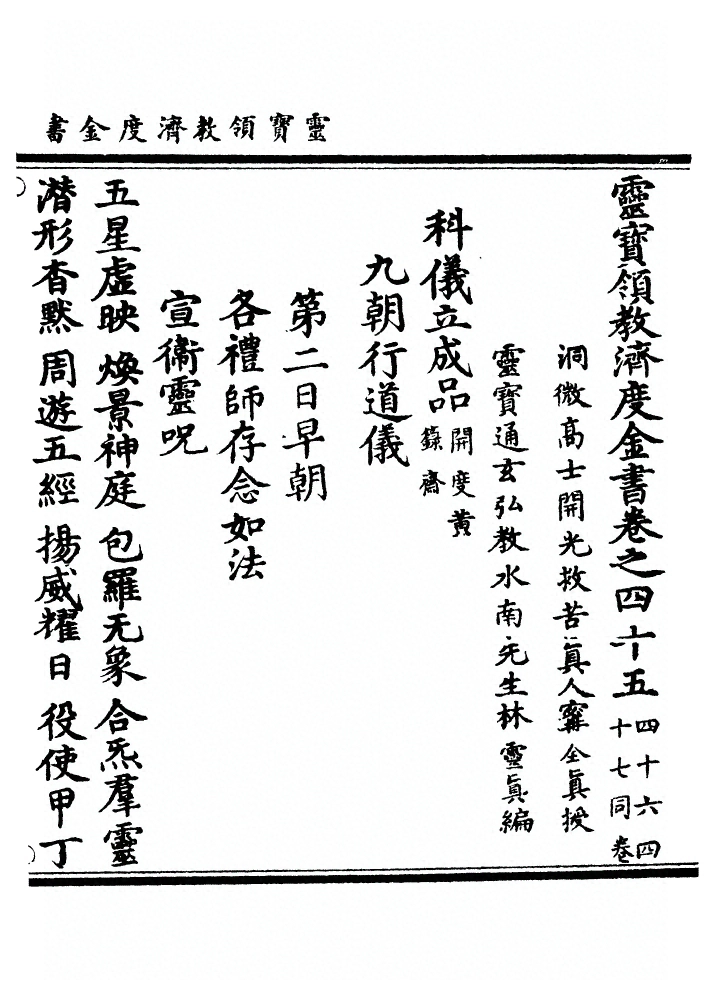 靈寶領教濟度金書
靈寶領教濟度金書卷之四十五四十六四十七同卷
洞微高士開光救苦眞人甯全眞授
靈寶通玄弘教水南先生林靈眞編
科儀立成品開度黃籙齋
九朝行道儀
第二日早朝
各禮師存念如法
宣衞靈呪
五星虛映 煥景神庭 包羅无象 合炁羣靈
潛形杳默 周遊五經 揚威耀日 役使甲丁